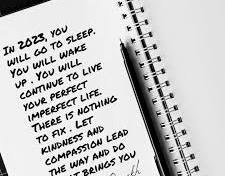 IN 2023, YOU
WILL GO TO SLEEP.
YOU WILL WAKE
UP. YOU WILL
CONTINUE TO LIVE
YOUR PERFECT
IMPERFECT LIFE.
THERE IS NOTHING
TO FIX. LET
KINDNESS AND
COMPASSION LEAD
THE WAY AND DO
BRINGS YOU